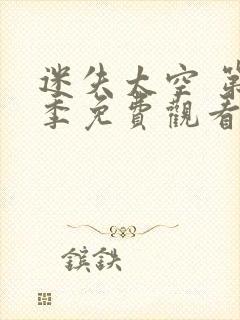 迷失太空 第
季免費觀看
鎲鉄